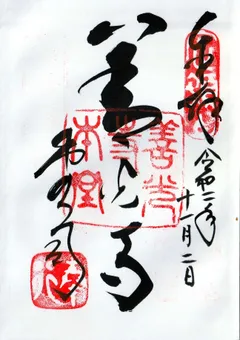 奉拝
令和二年
十一月二日
善光寺
善光寺
本堂